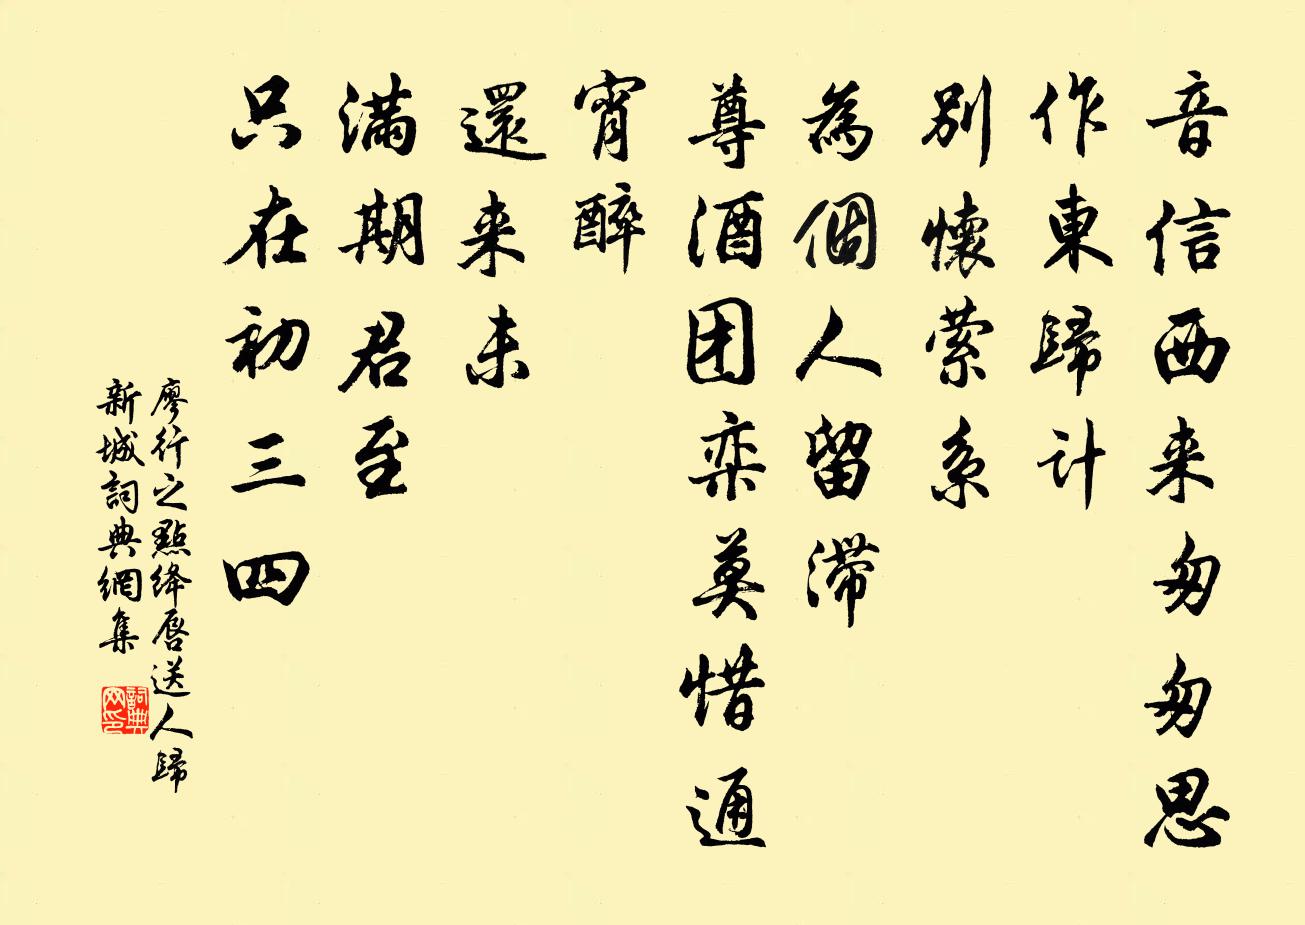 音信西来匆匆思
作東歸计
别懷萦系
為個人留滞
尊酒团栾莫惜通
宵醉
還来未
满期君至
只在初三四
廖行之點绛唇送人歸
新城詞典網集
詞典网印